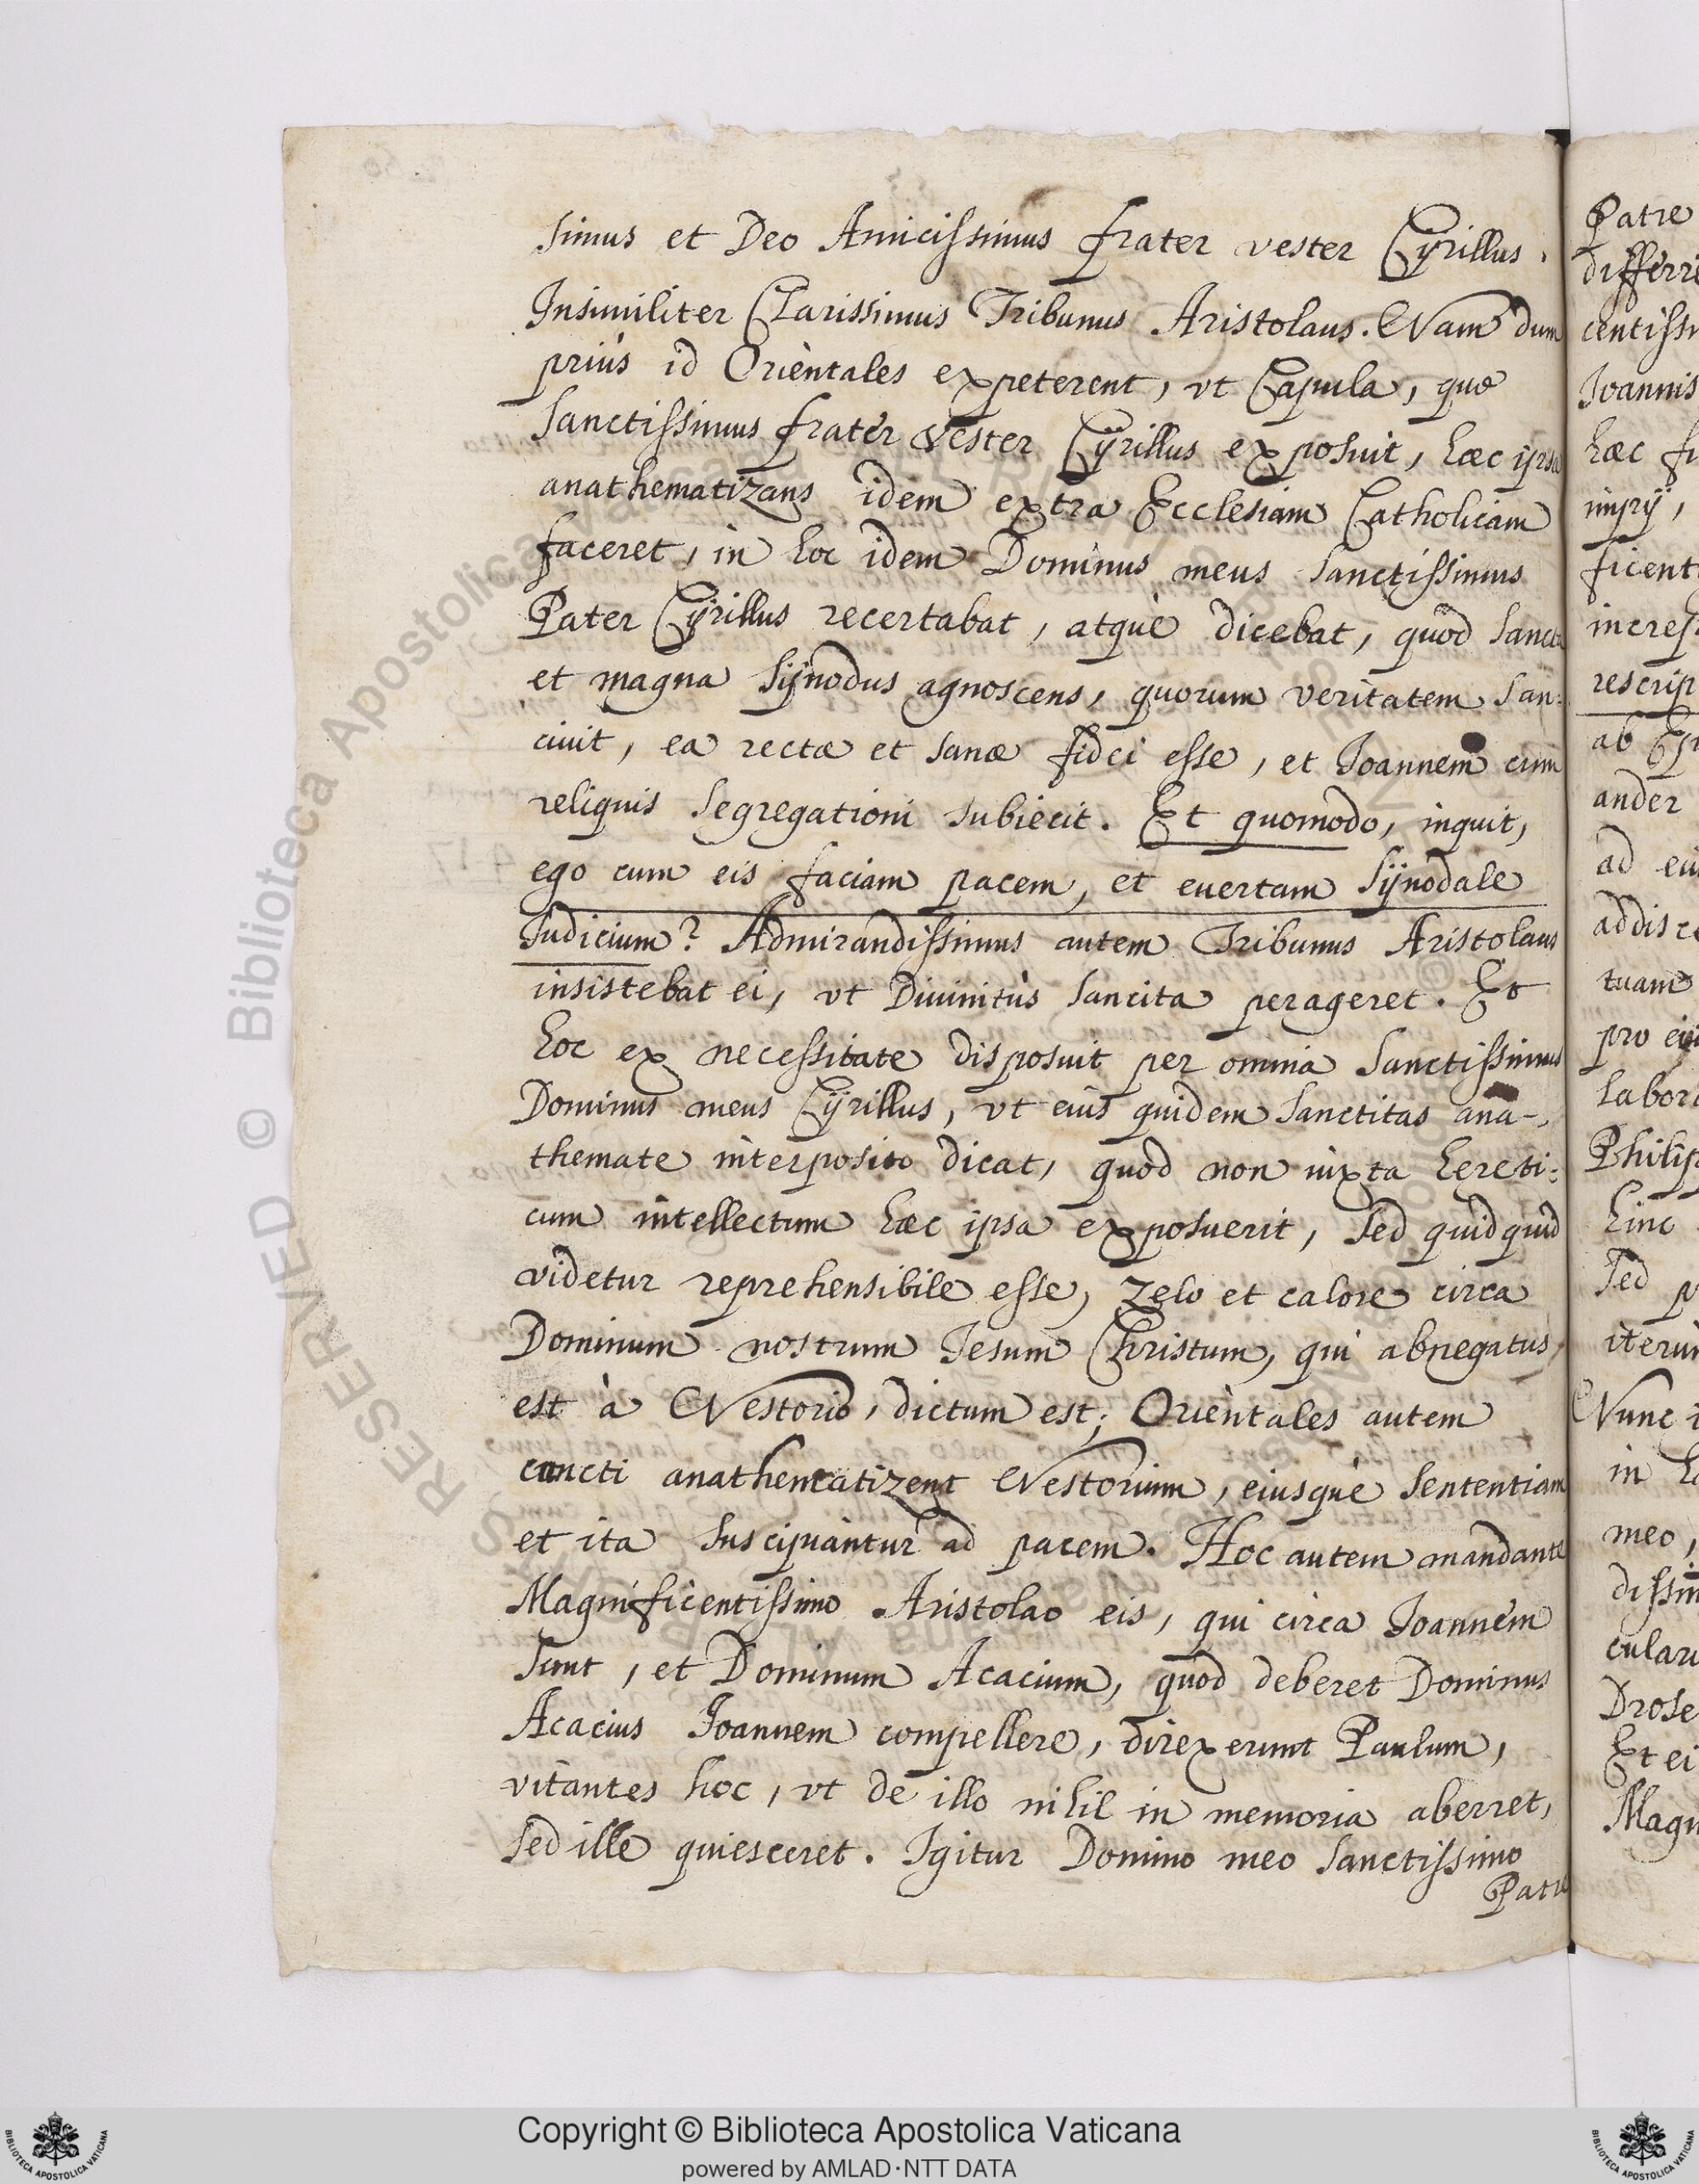 simus et Deo Amicissimus frater vester Cÿrillus.
Insimiliter Clarissimus Tribunus Aristolaus. Nam dum
priùs id Orièntales expeterent, vt Capula, quæ
Sanctissimus frater vester Cÿrillus exposuit, hæc ipsa
anathematizans idem extra Ecclesiam Catholicam
faceret, in hoc idem Dominus meus Sanctissimus
Pater Cÿrillus recertabat, atquè dicebat, quòd Sancta
et magna Sÿnodus agnoscens, quorum veritatem San:
ciuit, ea rectæ et sanæ fidei esse, et Joannem cum
reliquis segregationi subiecit. Et quomodo, inquit,
ego cum eis faciam pacem, et euertam Sÿnodale
Judicium? Admirandissimus autem Tribunus Aristolaus
insistebat ei, vt Diuinitùs sancita perageret. Et
hoc ex necessitate disposuit per omnia Sanctissimus
Dominus meus Cÿrillus, vt eius quidem Sanctitas ana-
themate interposito dicat, quod non iuxta hereti:
cum intellectum hæc ipsa exposuerit, sed quidquid
videtur reprehensibile esse, zelo et calore circa
Dominum nostrum Jesum Christum, qui abnegatus
est à Nestorio, dictum est; Orièntales autem
cuncti anathematizent Nestorium, eiusquè sententiam
et ita suscipiantur ad pacem. Hoc autem mandante
Magnificentissimo Aristolao eis, qui circa Joannem
sunt, et Dominum Acacium, quod deberet Dominus
Acacius Joannem compellere, direxerunt Paulum,
vitantes hoc, vt de illo nihil in memoria aberret,
sed ille quiesceret. Igitur Domino meo Sanctissimo
Patre
Patre
differri
centissi
Joannis
hæc fi
impÿ,
ficenti
incresp
rescrip
ab Epi
ander
ad eiu
addisce
tuam
pro eiu
labora
Philip
hinc
sed p
iterùm
Nunc i
in ha
meo,
dissim
cularu
Drose
Et ei
Magn
RESERVED © Biblioteca Apostolica Vaticana
Copyright © Biblioteca Apostolica Vaticana
powered by AMLAD·NTT DATA
BIBLIOTECA APOSTOLICA VATICANA
BIBLIOTECA APOSTOLICA VATICANA